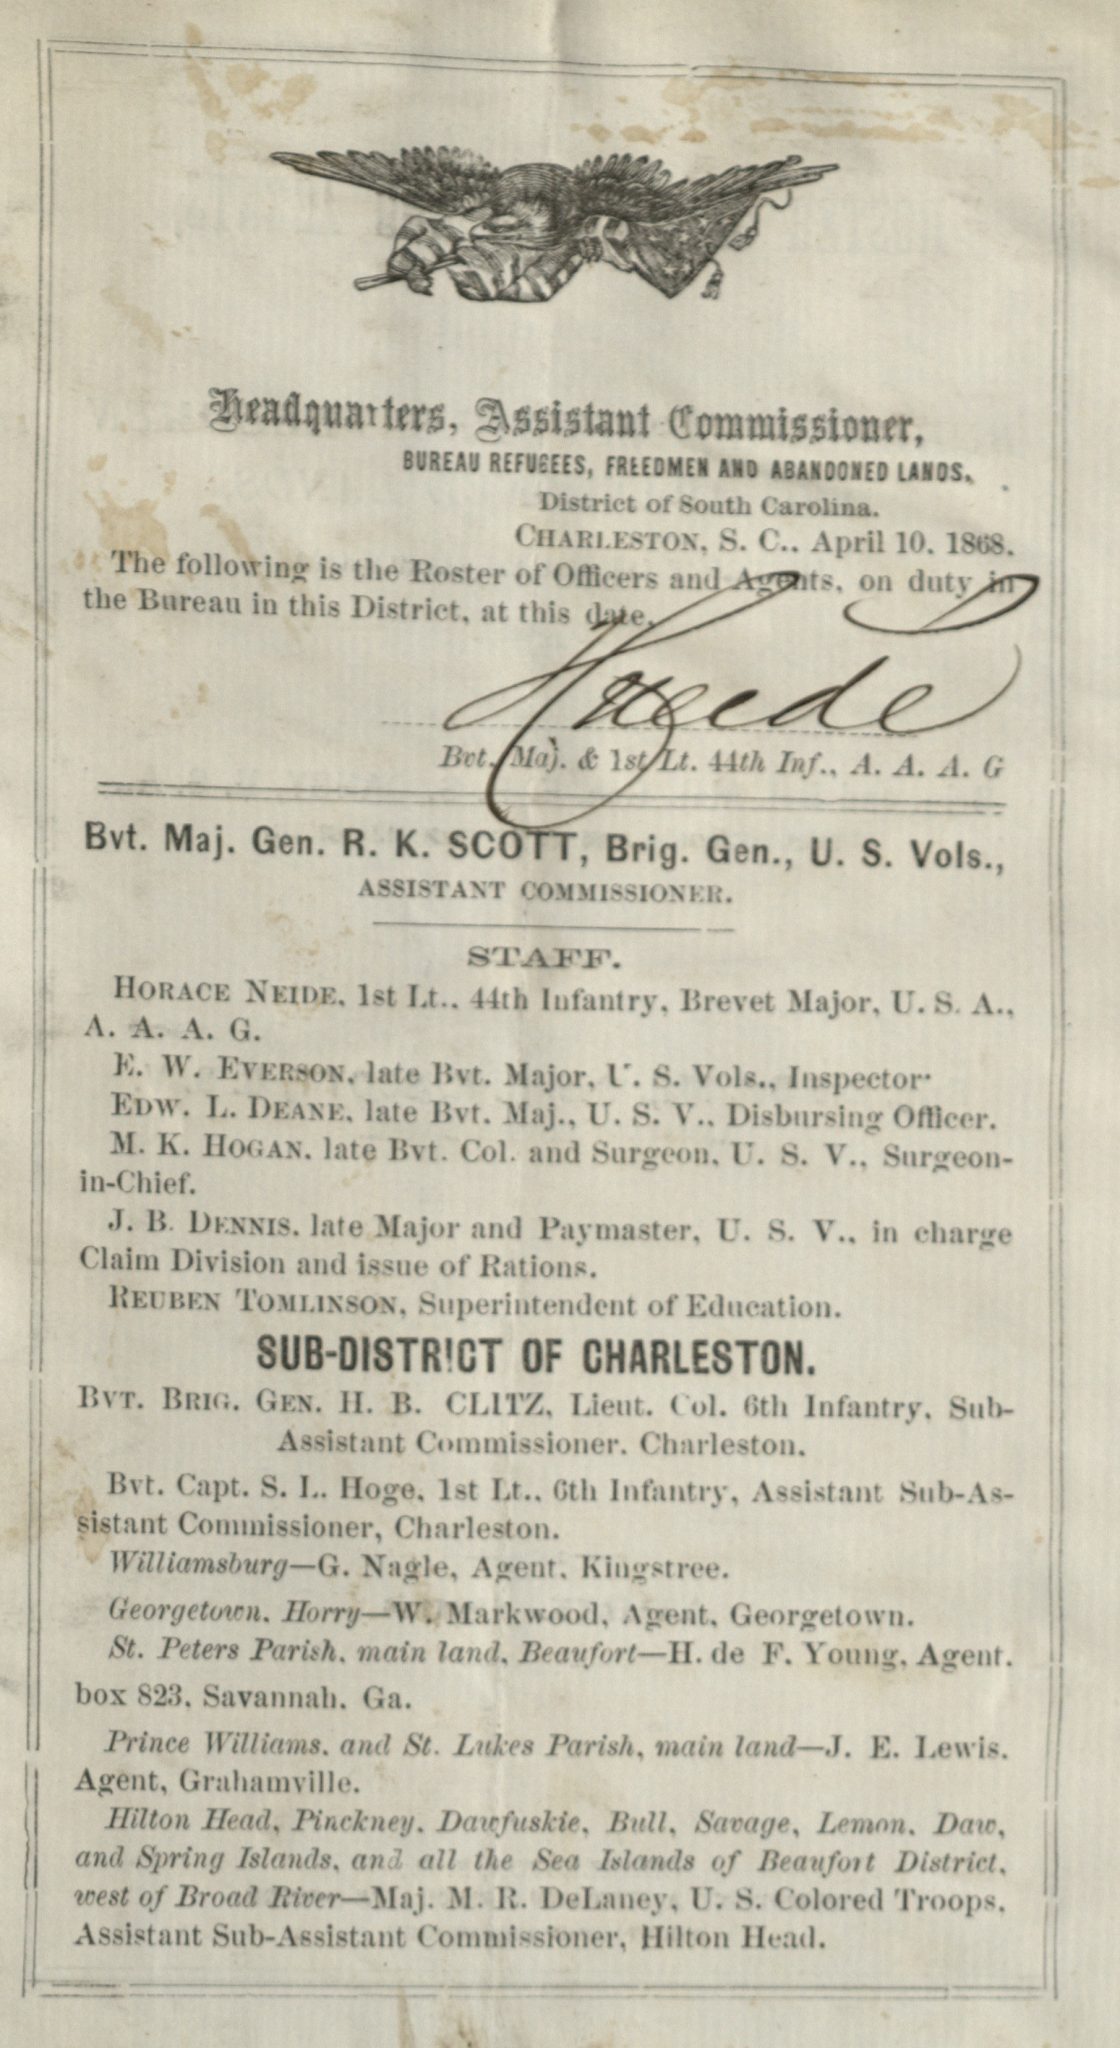 Headquarters, Assistant Commissioner,
BUREAU REFUGEES, FREEDMEN AND ABANDONED LANDS.
District of South Carolina.
CHARLESTON, S. C., April 10, 1868.
The following is the Roster of Officers and Agents, on duty in
the Bureau in this District, at this date.
H Neide
Bvt. Maj. & 1st Lt. 44th Inf., A. A. A. G
Bvt. Maj. Gen. R. K. SCOTT, Brig. Gen., U. S. Vols.,
ASSISTANT COMMISSIONER.
STAFF.
HORACE NEIDE, 1st Lt., 44th Infantry, Brevet Major, U. S. A.,
A. A. A. G.
E. W. EVERSON, late Bvt. Major, U. S. Vols., Inspector.
EDW. L. DEANE, late Bvt. Maj., U. S. V., Disbursing Officer.
M. K. HOGAN, late Bvt. Col. and Surgeon, U. S. V., Surgeon-
in-Chief.
J. B. DENNIS, late Major and Paymaster, U. S. V., in charge
Claim Division and issue of Rations.
REUBEN TOMLINSON, Superintendent of Education.
SUB-DISTRICT OF CHARLESTON.
BVT. BRIG. GEN. H. B. CLITZ, Lieut. Col. 6th Infantry, Sub-
Assistant Commissioner, Charleston.
Bvt. Capt. S. L. Hoge, 1st Lt., 6th Infantry, Assistant Sub-As-
sistant Commissioner, Charleston.
Williamsburg—G. Nagle, Agent, Kingstree.
Georgetown, Horry—W. Markwood, Agent, Georgetown.
St. Peters Parish, main land, Beaufort—H. de F. Young, Agent,
box 823, Savannah, Ga.
Prince Williams, and St. Lukes Parish, main land—J. E. Lewis,
Agent, Grahamville.
Hilton Head, Pinckney, Dawfuskie, Bull, Savage, Lemon, Daw,
and Spring Islands, and all the Sea Islands of Beaufort District,
west of Broad River—Maj. M. R. DeLaney, U. S. Colored Troops,
Assistant Sub-Assistant Commissioner, Hilton Head.